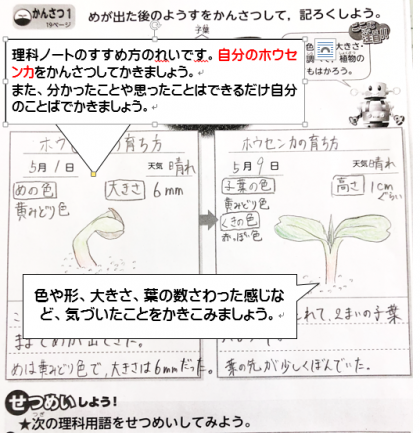 かんさつ1
19ページ
めが出た後のようすをかんさつして，記ろくしよう。
子葉
色
大きさ・
調
植物の
もはかろう。
理科ノートのすすめ方のれいです。自分のホウセ
ンカをかんさつしてかきましょう。
また、分かったことや思ったことはできるだけ自分
のことばでかきましょう。
の育ち方
5月1日 天気 晴れ
めの色 大きさ 6mm
黄みどり色
ホウセンカの育ち方
5月9日 天気 晴れ
子葉の色 高さ 1cm
ぐらい
黄みどり色
くきの色
赤っぽい色
色や形、大きさ、葉の数さわった感じな
ど、気づいたことをかきこみましょう。
れて，2まいの子葉
めは黄みどり色で，大きさは6mmだった。
葉の先が少しくぼんでいた。
せつめいしよう！
★次の理科用語をせつめいしてみよう。